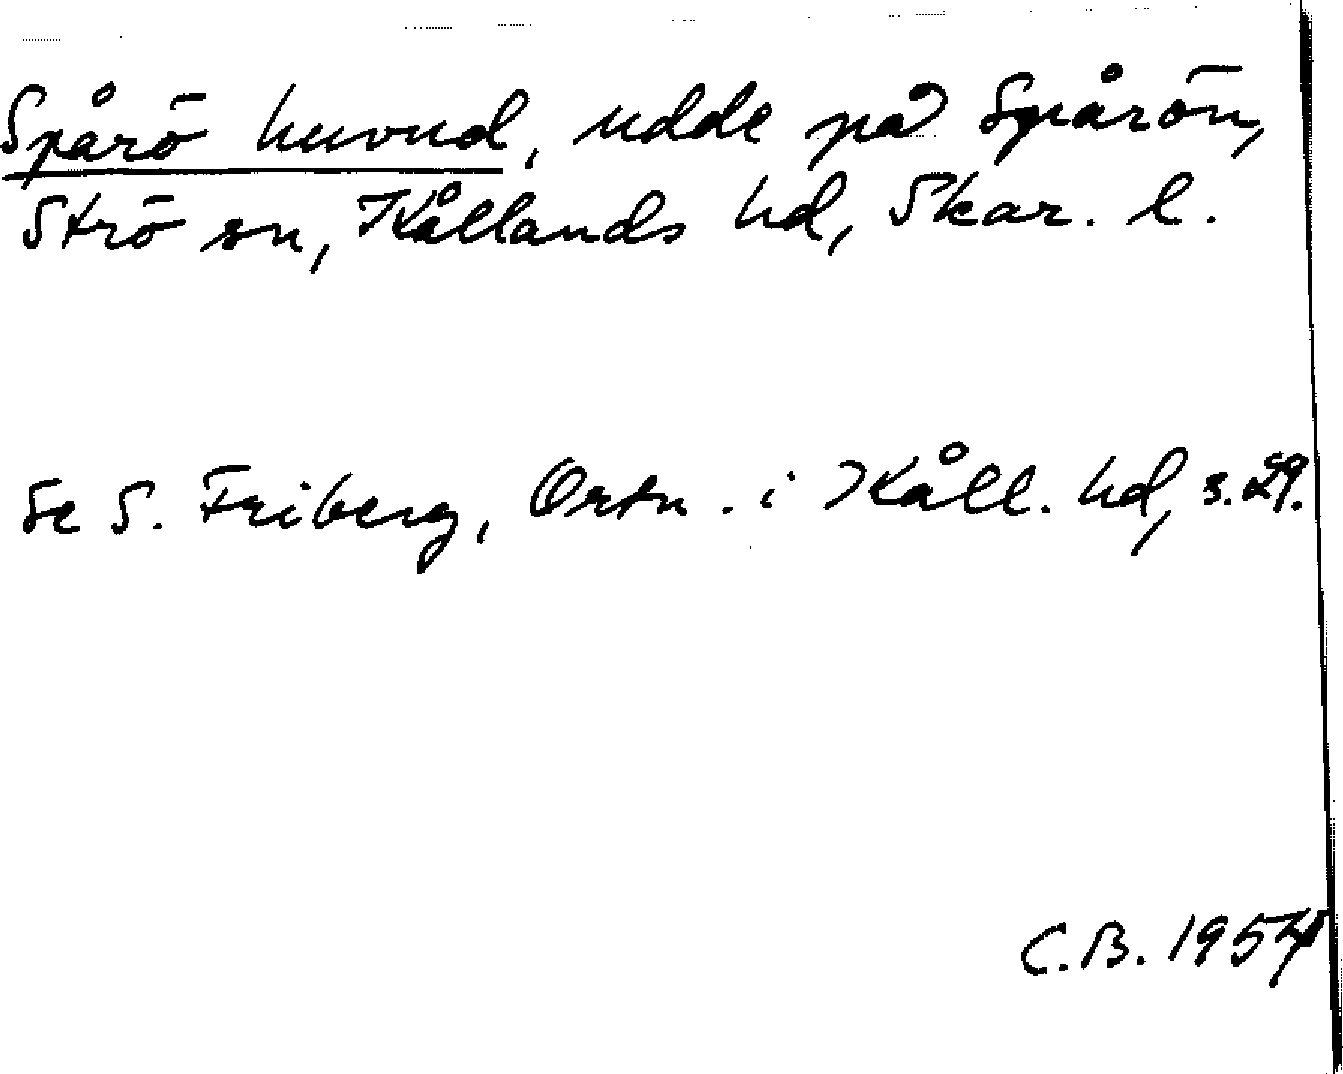 Spårö huvud, udde på Spårön,
Strö sn, Kållands hd, Skar. l.
Se S. Friberg, Ortn. i Kåll. hd, s. 29.
C.B. 1954